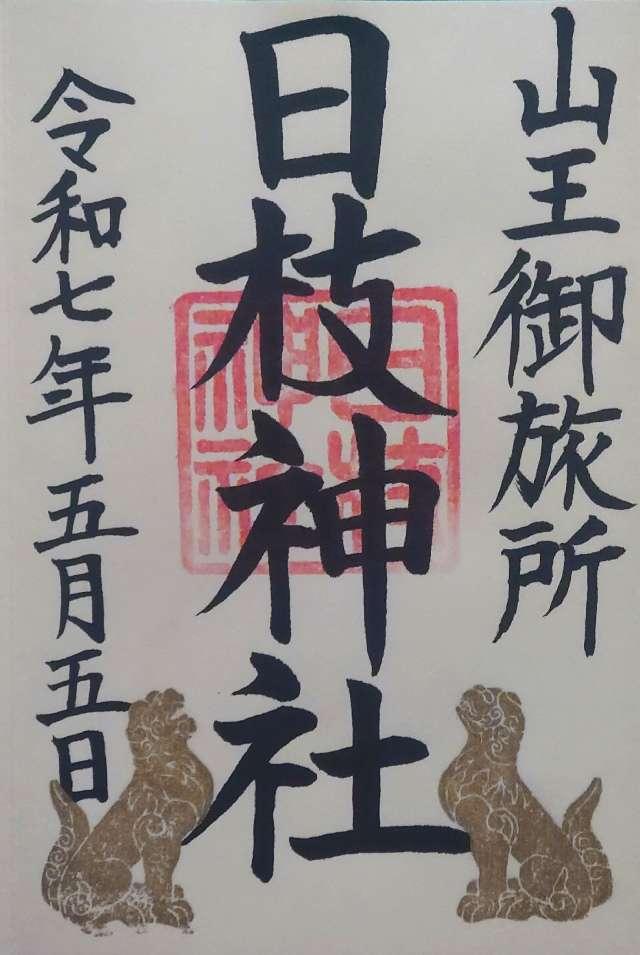 山王御旅所
日枝神社
令和七年五月五日
日枝
神社